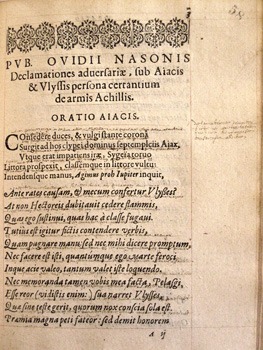 PVB. OVIDII NASONIS
Declamationes adversariæ, sub Aiacis
& Vlyssis persona certantium
de armis Achillis.
ORATIO AIACIS.
Consedere duces, & vulgi stante corona
Surgit ad hos clypei dominus septemplicis Ajax,
Vtque erat impatiens iræ, Sygeia torvo
Littora prospexit, classemque in littore vultu
Intendensque manus, Agimus proh Iupiter inquit,
Ante rates causam, & mecum confertur Vlysses?
At non Hectoreis dubitavit cedere flammis,
Quas ego sustinui, quas hac à classe fugavi.
Tutius est igitur fictis contendere verbis,
Quam pugnare manu: sed nec mihi dicere promptum,
Nec facere est isti, quantumque ego Marte feroci
Inque acie valeo, tantum valet iste loquendo.
Nec memoranda tamen vobis mea facta, Pelasgi,
Esse reor (vidistis enim:) sua narret Vlysses,
Quæ sine teste gerit, quorum nox conscia sola est.
Præmia magna peti fateor: sed demit honorem
A ij